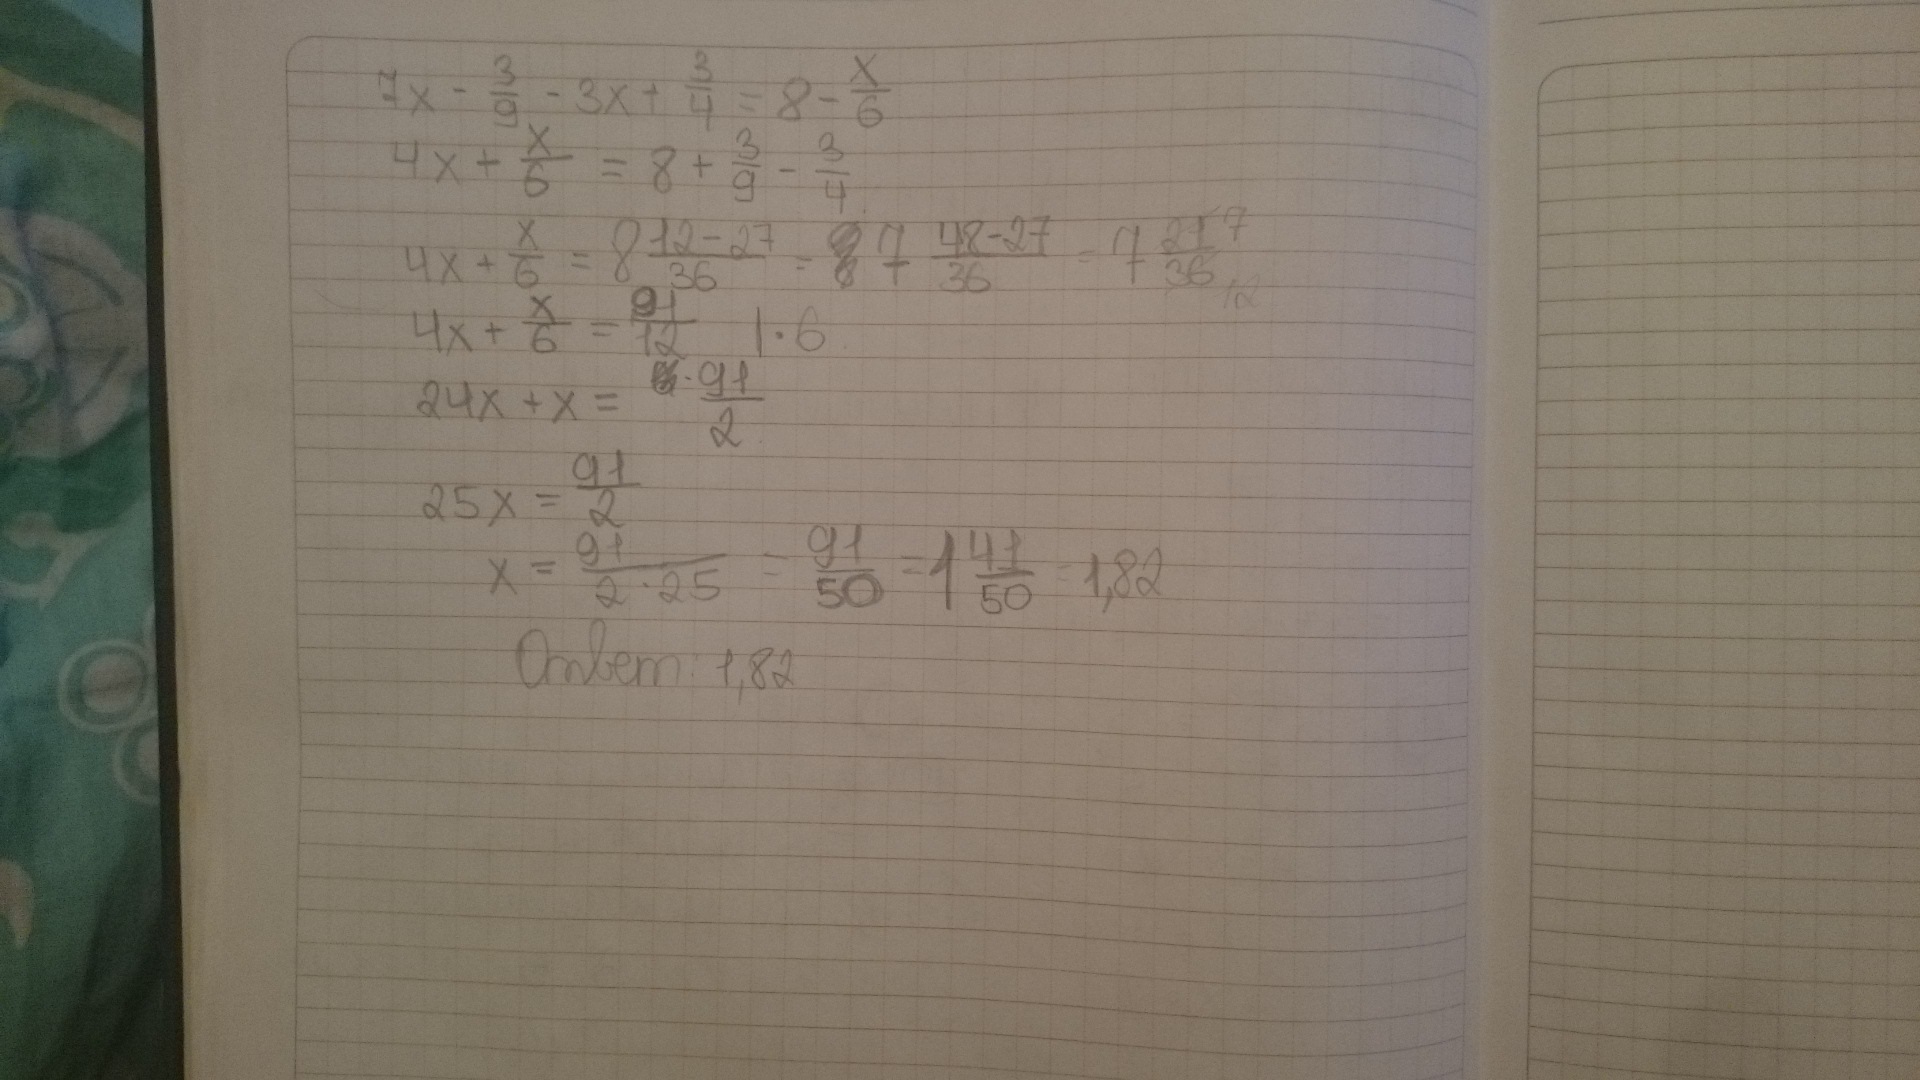 7x - 3/9 - 3x + 3/4 = 8 - x/6
4x + x/6 = 8 + 3/9 - 3/4
4x + x/6 = 8 12-27/36 = 7 48-27/36 = 7 21/36 7 12
4x + x/6 = 91/12 | · 6
24x + x = · 91/2
25x = 91/2
x = 91/2·25 = 91/50 = 1 41/50 = 1,82
Ответ: 1,82